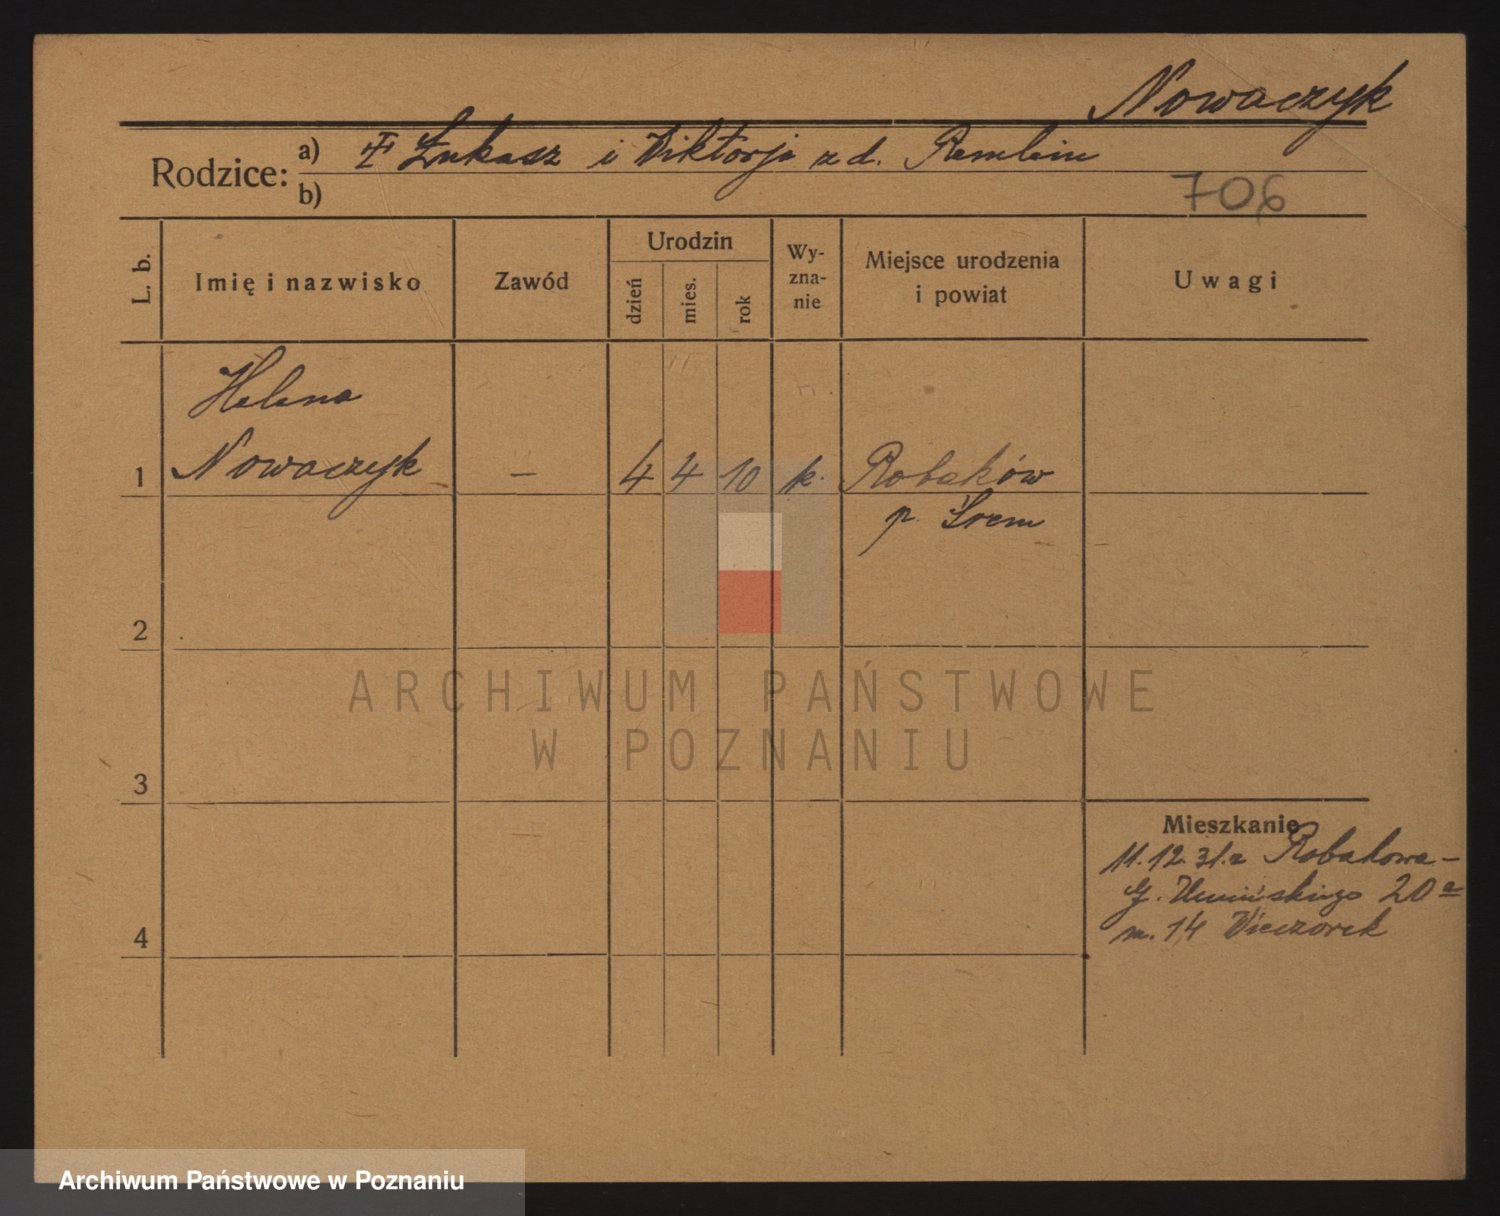 Nowaczyk
Rodzice: a) Łukasz i Wiktorja z d. Remlein
b)
706
L. b. Imię i nazwisko Zawód Urodzin dzień mies. rok Wyznanie Miejsce urodzenia i powiat Uwagi
Helena
1 Nowaczyk – 4 4 10 k. Robaków
p. Śrem
2
ARCHIWUM PAŃSTWOWE
W POZNANIU
3
Mieszkanie
11.12.31. z Robakowa –
G. Umińskiego 20a
4 m. 14 Wieczorek
Archiwum Państwowe w Poznaniu